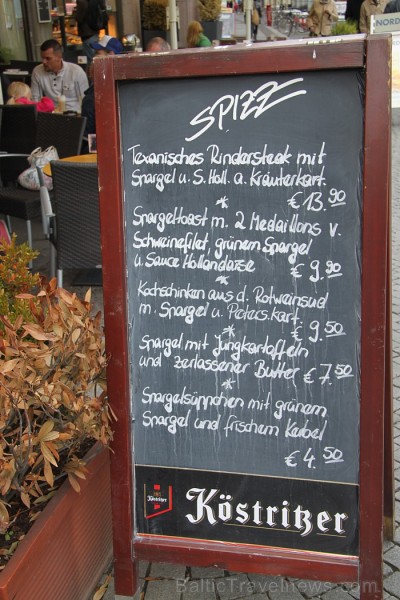 NORD
SPIZZ
Texanisches Rindersteak mit
Spargel u. S. Holl. a. Kräuterkart.
€ 13.90
*
Spargeltoast m. 2 Medaillons v.
Schweinefilet, grünem Spargel
u. Sauce Hollandaise € 9.90
*
Kochschinken aus d. Rotweinsud
m. Spargel u. Peters.kart.
* € 9.50
Spargel mit Jungkartoffeln
und zerlassener Butter € 7.50
*
Spargelsüppchen mit grünem
Spargel und frischem Kerbel
€ 4.50
Köstritzer
Köstritzer
© BalticTravelNews.com